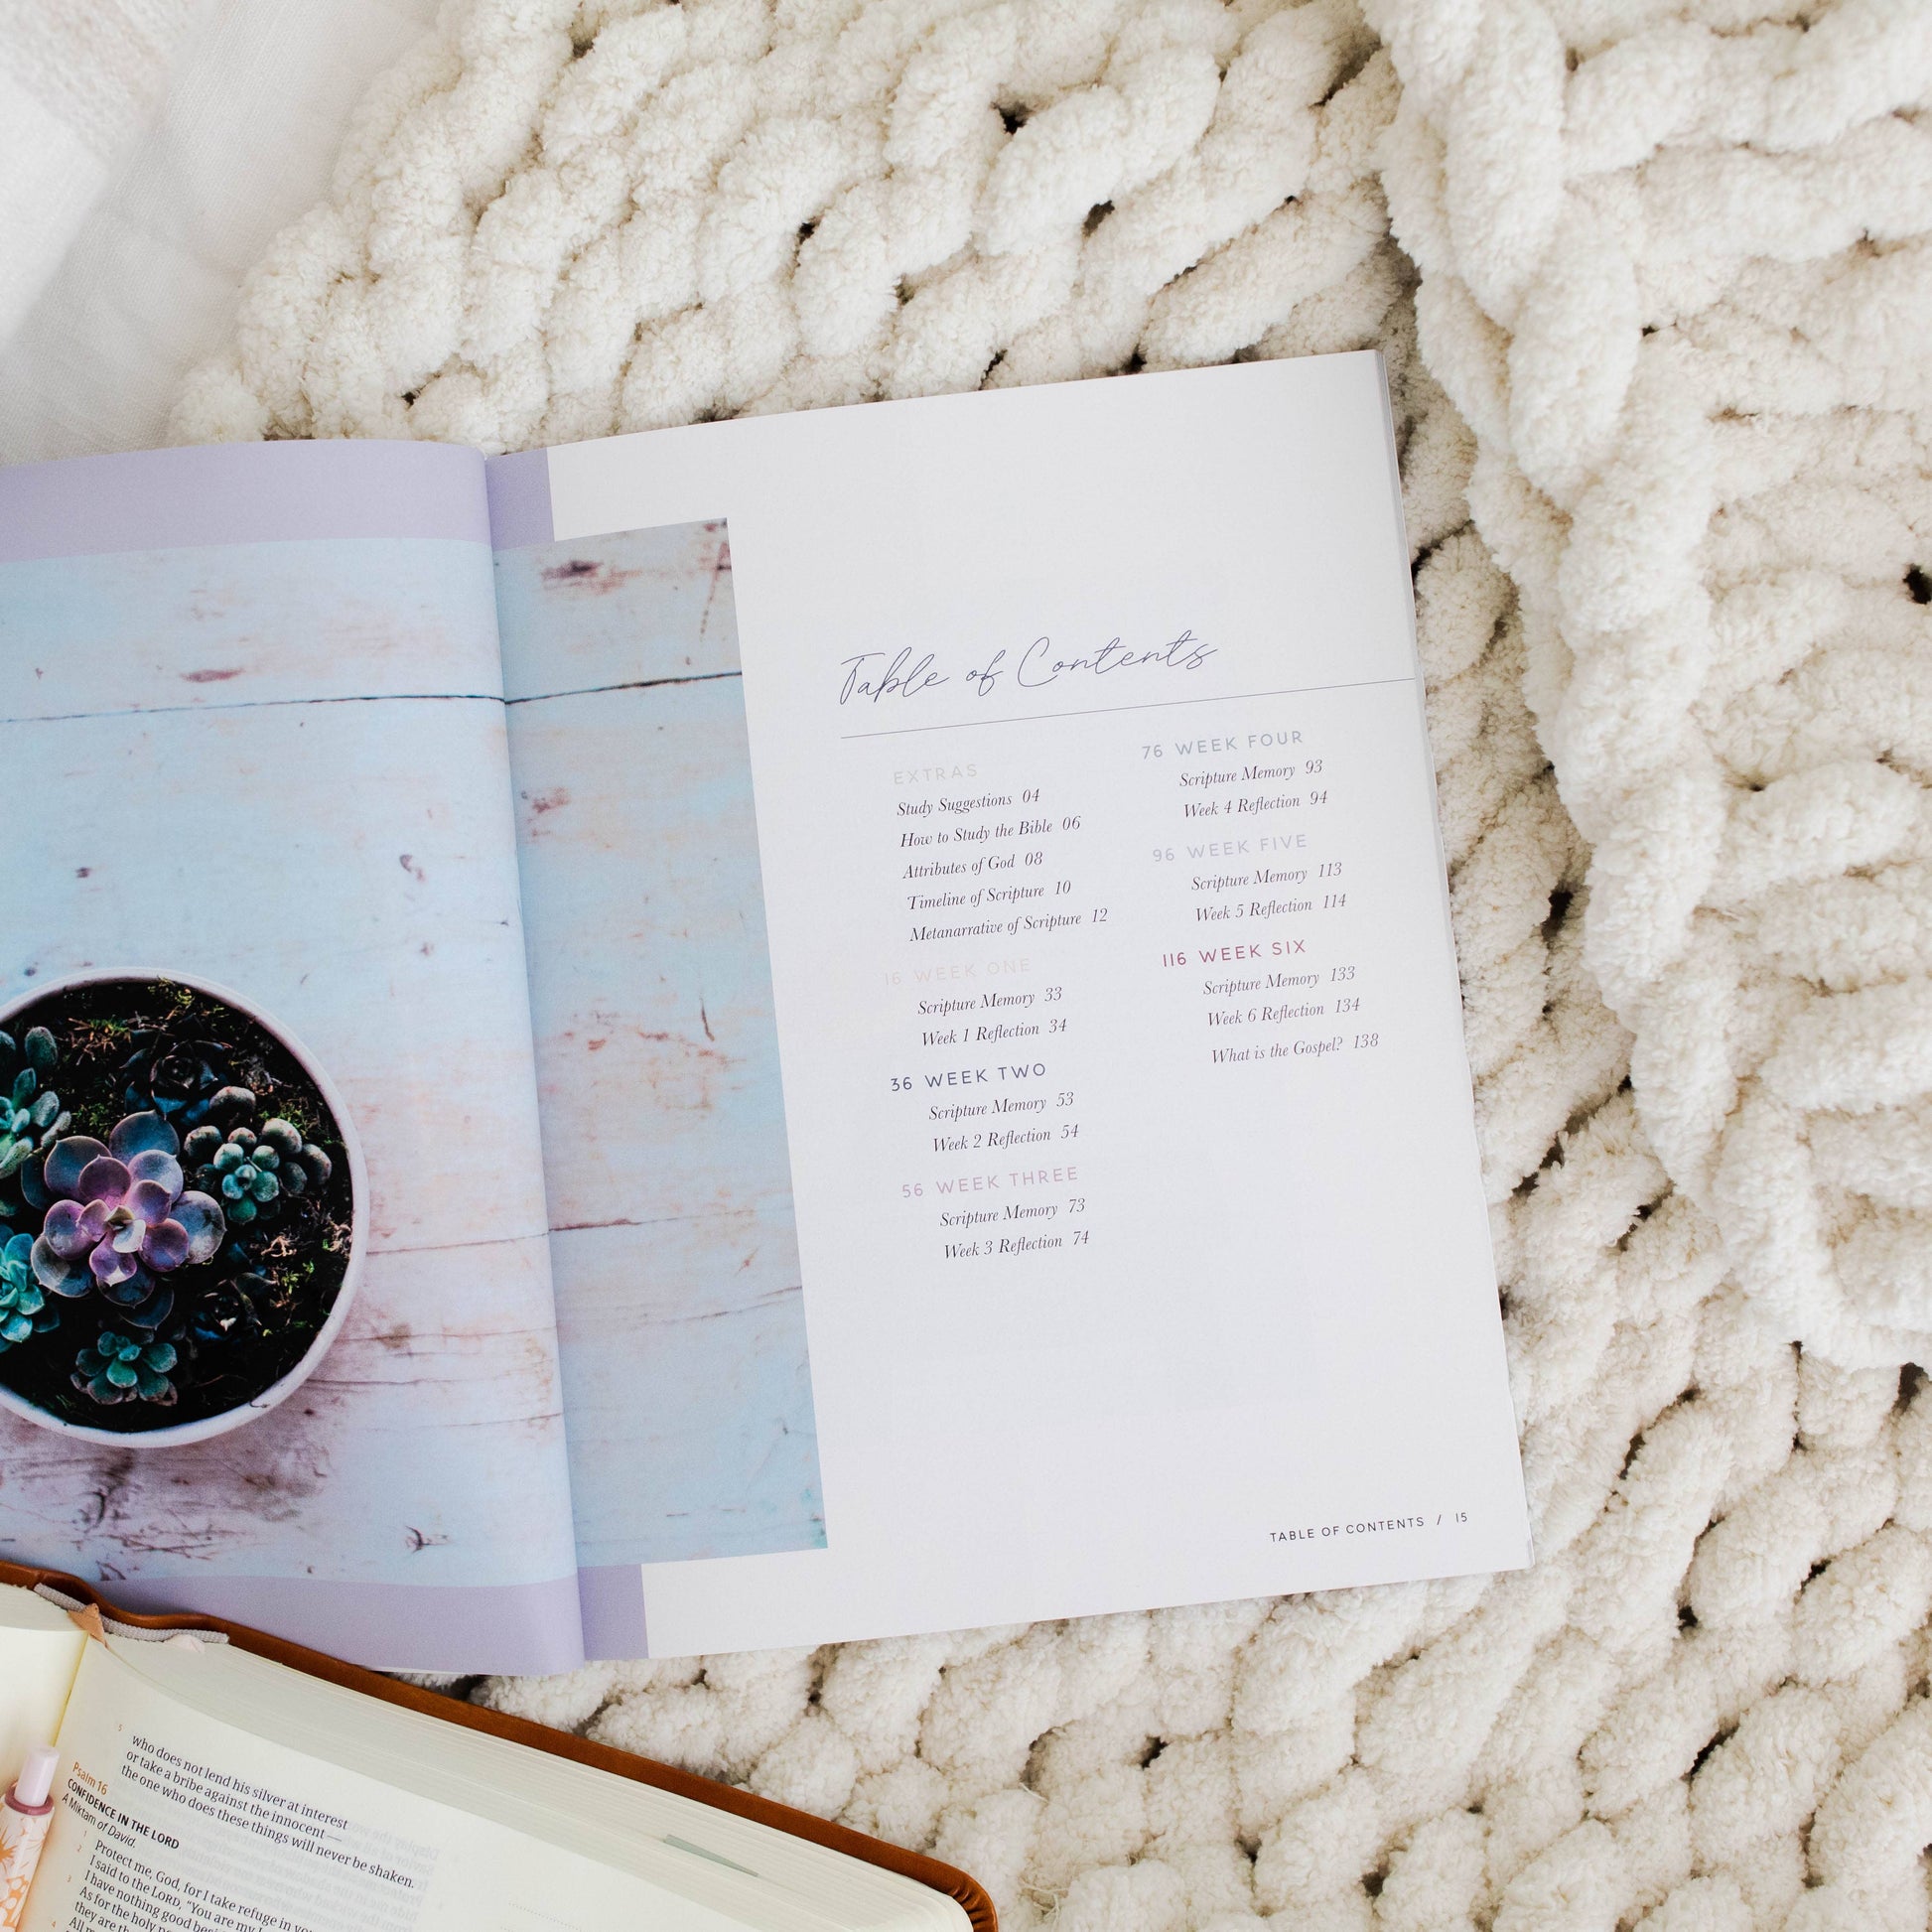 Table of Contents
EXTRAS
Study Suggestions 04
How to Study the Bible 06
Attributes of God 08
Timeline of Scripture 10
Metanarrative of Scripture 12
16 WEEK ONE
Scripture Memory 33
Week 1 Reflection 34
36 WEEK TWO
Scripture Memory 53
Week 2 Reflection 54
56 WEEK THREE
Scripture Memory 73
Week 3 Reflection 74
76 WEEK FOUR
Scripture Memory 93
Week 4 Reflection 94
96 WEEK FIVE
Scripture Memory 113
Week 5 Reflection 114
116 WEEK SIX
Scripture Memory 133
Week 6 Reflection 134
What is the Gospel? 138
TABLE OF CONTENTS / 15
5 who does not lend his silver at interest
or take a bribe against the innocent —
the one who does these things will never be shaken.
Psalm 16
CONFIDENCE IN THE LORD
A Miktam of David.
1 Protect me, God, for I take refuge in
2 I said to the LORD, “You are my
I have nothing good
3 As for the holy
they are
4 All